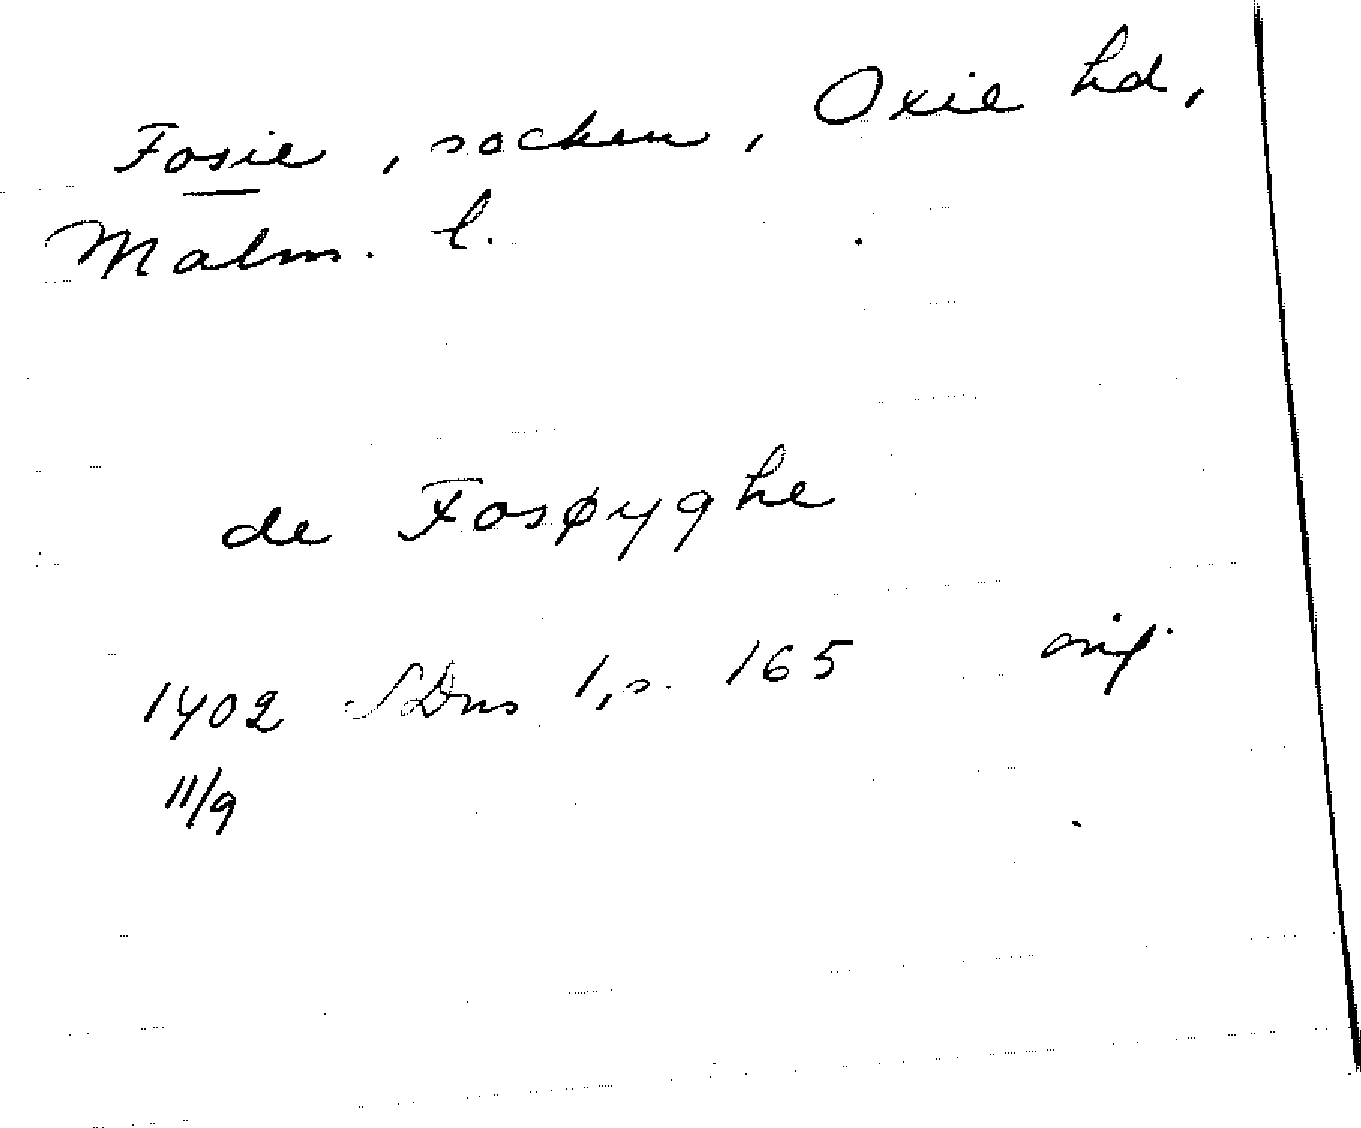 Fosie, socken, Oxie hd,
Malm. l.
de Fosøyghe
1402 SDns 1, s. 165 orig.
11/9